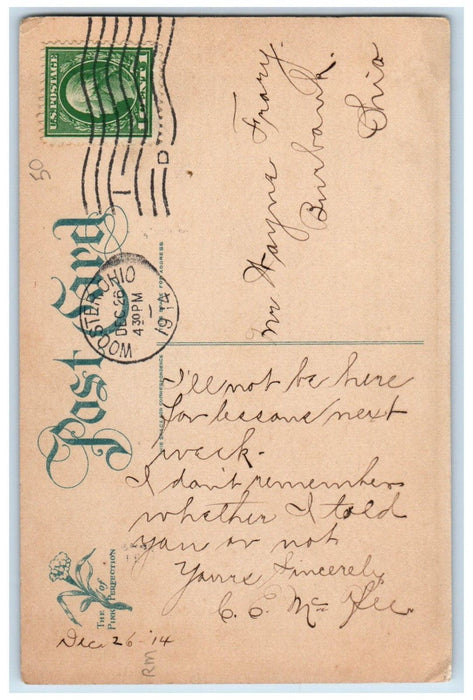 U.S. POSTAGE
1 CENT 1
D
50
WOOSTER, OHIO
DEC 26
4 30 PM
1914
1
Post Card
THIS SPACE FOR CORRESPONDENCE
THIS SPACE FOR ADDRESS
Mr Wayne Frary.
Burbank.
Ohio
I'll not be here
for lessons next
week.
I don't remember
whether I told
you or not
Yours Sincerely,
C. E. McKee.
THE PINK OF PERFECTION
Dec. 26 - '14
RM